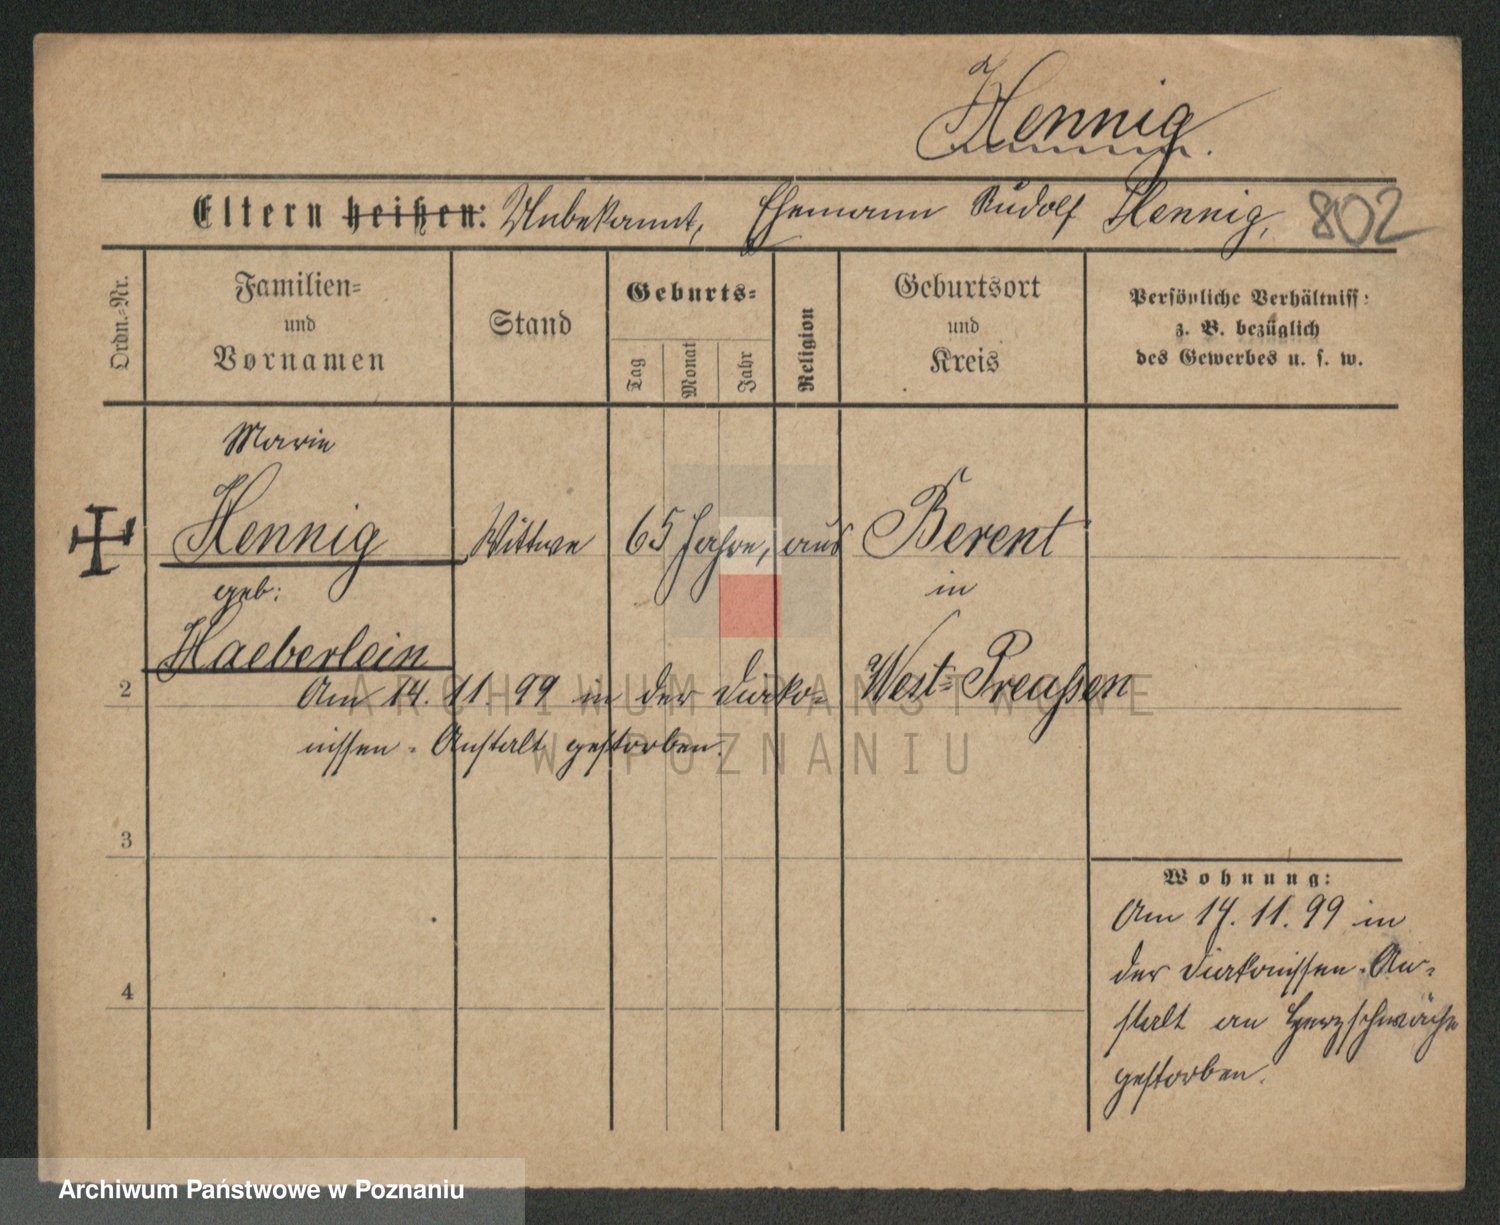 Hennig.
Eltern heißen: Unbekannt, Ehemann Rudolf Hennig, 802
Ordn.=Nr.
Familien=
und
Vornamen
Stand
Geburts=
Tag
Monat
Jahr
Religion
Geburtsort
und
Kreis
Persönliche Verhältniss:
z. B. bezüglich
des Gewerbes u. s. w.
Marie
Hennig Wittwe 65 Jahre, aus Berent
geb: in
Haeberlein West=Preußen
2 Am 14. 11. 99 in der Diako=
nissen=Anstalt gestorben.
3
Wohnung:
Am 14. 11. 99 in
der Diakonissen=An=
stalt an Herzschwäche
gestorben.
4
ARCHIWUM PAŃSTWOWE
W POZNANIU
Archiwum Państwowe w Poznaniu